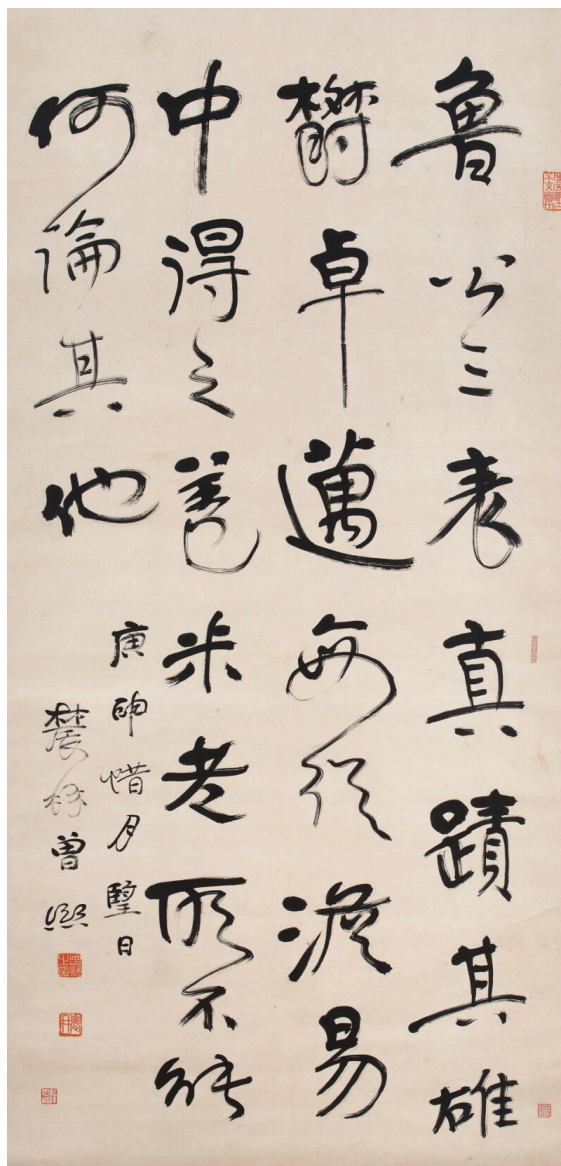 魯公三表真蹟其雄
鬱卓邁每從澹易
中得之蓋米老所不能
何論其他
庚申惜月堲日
農髯曾熙